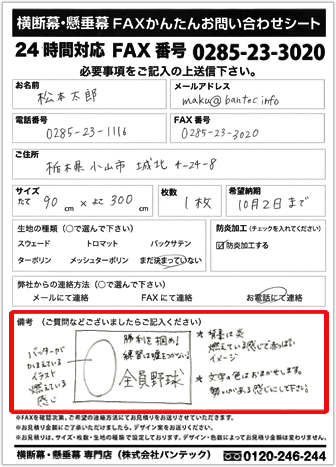 横断幕・懸垂幕 FAXかんたんお問い合わせシート
24時間対応 FAX番号 0285-23-3020
必要事項をご記入の上送信下さい。
お名前
松本太郎
メールアドレス
maku@bantec.info
電話番号
0285-23-1116
FAX番号
0285-23-3020
ご住所
栃木県小山市城北4-24-8
サイズ
たて 90 cm × よこ 300 cm
枚数
1枚
希望納期
10月2日まで
生地の種類(○で選んで下さい)
スウェード トロマット バックサテン
ターポリン メッシュターポリン まだ決まっていない
防炎加工(チェックを入れてください)
防炎加工する
弊社からの連絡方法(○で選んで下さい)
メールにて連絡 FAXにて連絡 お電話にて連絡
備考(ご質問などございましたらご記入ください)
バッターが
かまえている
イラスト
燃えている
感じ
勝利を掴め!
練習は嘘をつかない
全員野球
*背景は炎
燃えている感じで赤っぽい
イメージ
*文字の色はおまかせします。
勢いがある感じにして下さい。
※FAXを確認次第、ご希望の連絡方法にてお見積りをお送りさせていただきます。
※お見積り金額にご了承いただけましたら、デザイン案をお送りください。
※お見積りは、サイズ・枚数・生地の種類で設定しております。デザイン・色数によってお見積り金額は変わりません。
横断幕・懸垂幕 専門店(株式会社バンテック) 0120-246-244